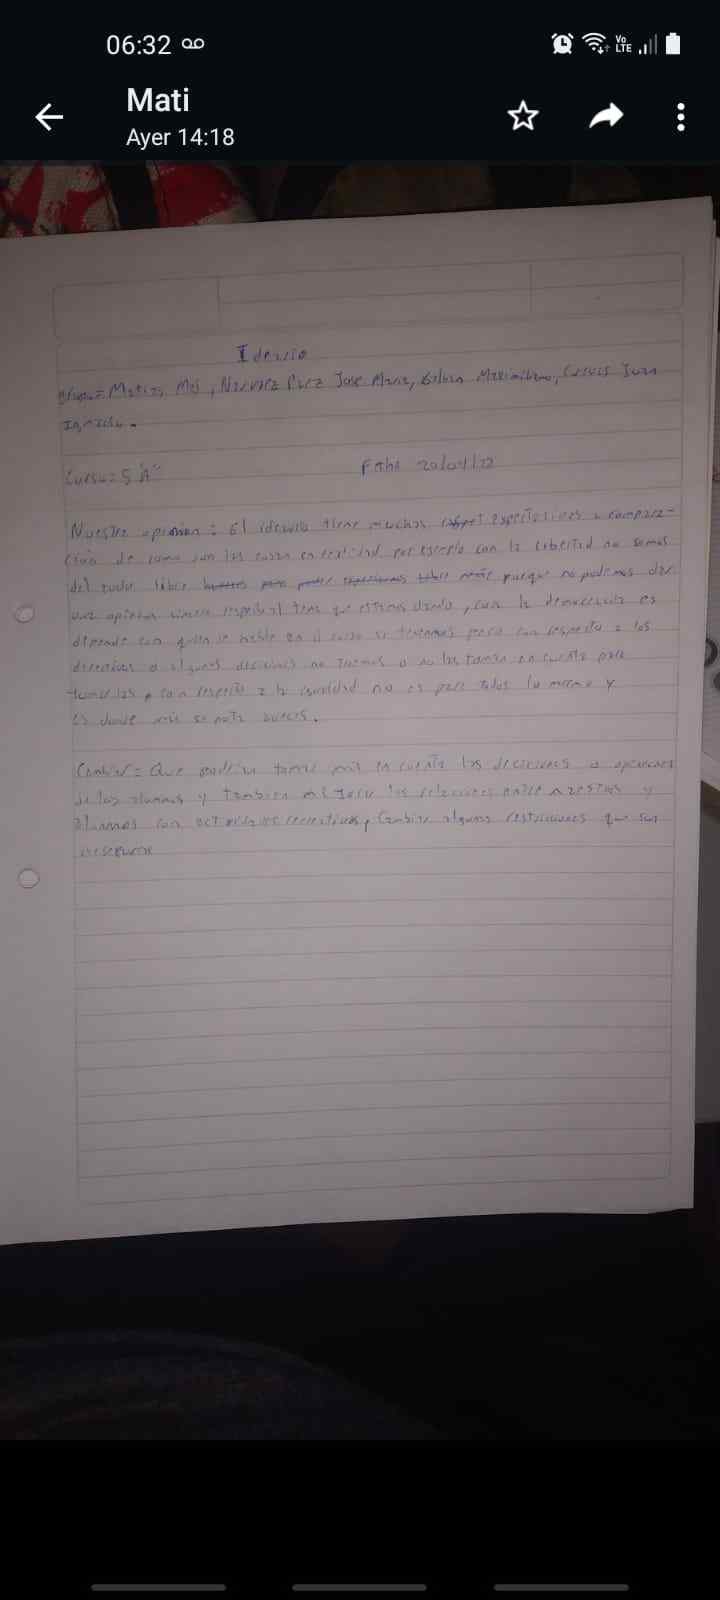 06:32
Vo
LTE
Mati
Ayer 14:18
Ideario
Grupo= Matias, Narvaez Jose Maria, Maximiliano, Juan
Ignacio.
Curso= 5"A"
Fecha 20/04/22
Nuestra opinion: El ideario tiene muchas a compara-
ción de como son las cosas en realidad por ejemplo con la libertad no somos
del todo libre porque no podemos dar
una opinion respecto al tema que estamos dando, con la democracia es
depende con quien se hable en el curso si tenemos pero con respecto a los
directivos o algunas decisiones no tenemos o no las toman en cuenta para
tomarlas, con respecto a la igualdad no es para todos lo mismo y
es donde más se nota
Cambiar= Que podrian tomar más en cuenta las decisiones o opiniones
de los alumnos y tambien mejorar las relaciones entre maestros y
alumnos con actividades recreativas, Cambiar algunas restricciones que son